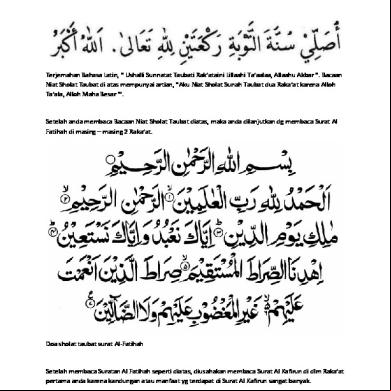 أُصَلِّيْ سُنَّةَ التَّوْبَةِ رَكْعَتَيْنِ لِلّٰهِ تَعَالَىٰ. اَللّٰهُ أَكْبَرُ
Terjemahan Bahasa Latin, " Ushalli Sunnatat Taubati Rak'ataini Lillaahi Ta'aalaa, Allaahu Akbar ". Bacaan
Niat Sholat Taubat di atas mempunyai artian, "Aku Niat Sholat Sunah Taubat dua Raka'at karena Alloh
Ta'ala, Alloh Maha Besar ".
Setelah anda membaca Bacaan Niat Sholat Taubat diatas, maka anda dilanjutkan dg membaca Surat Al
Fatihah di masing – masing 2 Raka'at.
بِسْمِ اللهِ الرَّحْمٰنِ الرَّحِيْمِ
اَلْحَمْدُ لِلّٰهِ رَبِّ الْعٰلَمِيْنَ ۝١ الرَّحْمٰنِ الرَّحِيْمِ ۝٢
مٰلِكِ يَوْمِ الدِّيْنِ ۝٣ اِيَّاكَ نَعْبُدُ وَاِيَّاكَ نَسْتَعِيْنُ ۝٤
اِهْدِنَا الصِّرَاطَ الْمُسْتَقِيْمَ ۝٥ صِرَاطَ الَّذِيْنَ اَنْعَمْتَ
عَلَيْهِمْ ۝٦ غَيْرِ الْمَغْضُوْبِ عَلَيْهِمْ وَلَا الضَّآلِّيْنَ ۝٧
Doa sholat taubat surat Al-Fatihah
Setelah membaca Suratan Al Fatihah seperti diatas, diusahakan membaca Surat Al Kafirun di dlm Raka'at
pertama anda karena kandungan atau manfaat yg terdapat di Surat Al Kafirun sangat banyak.